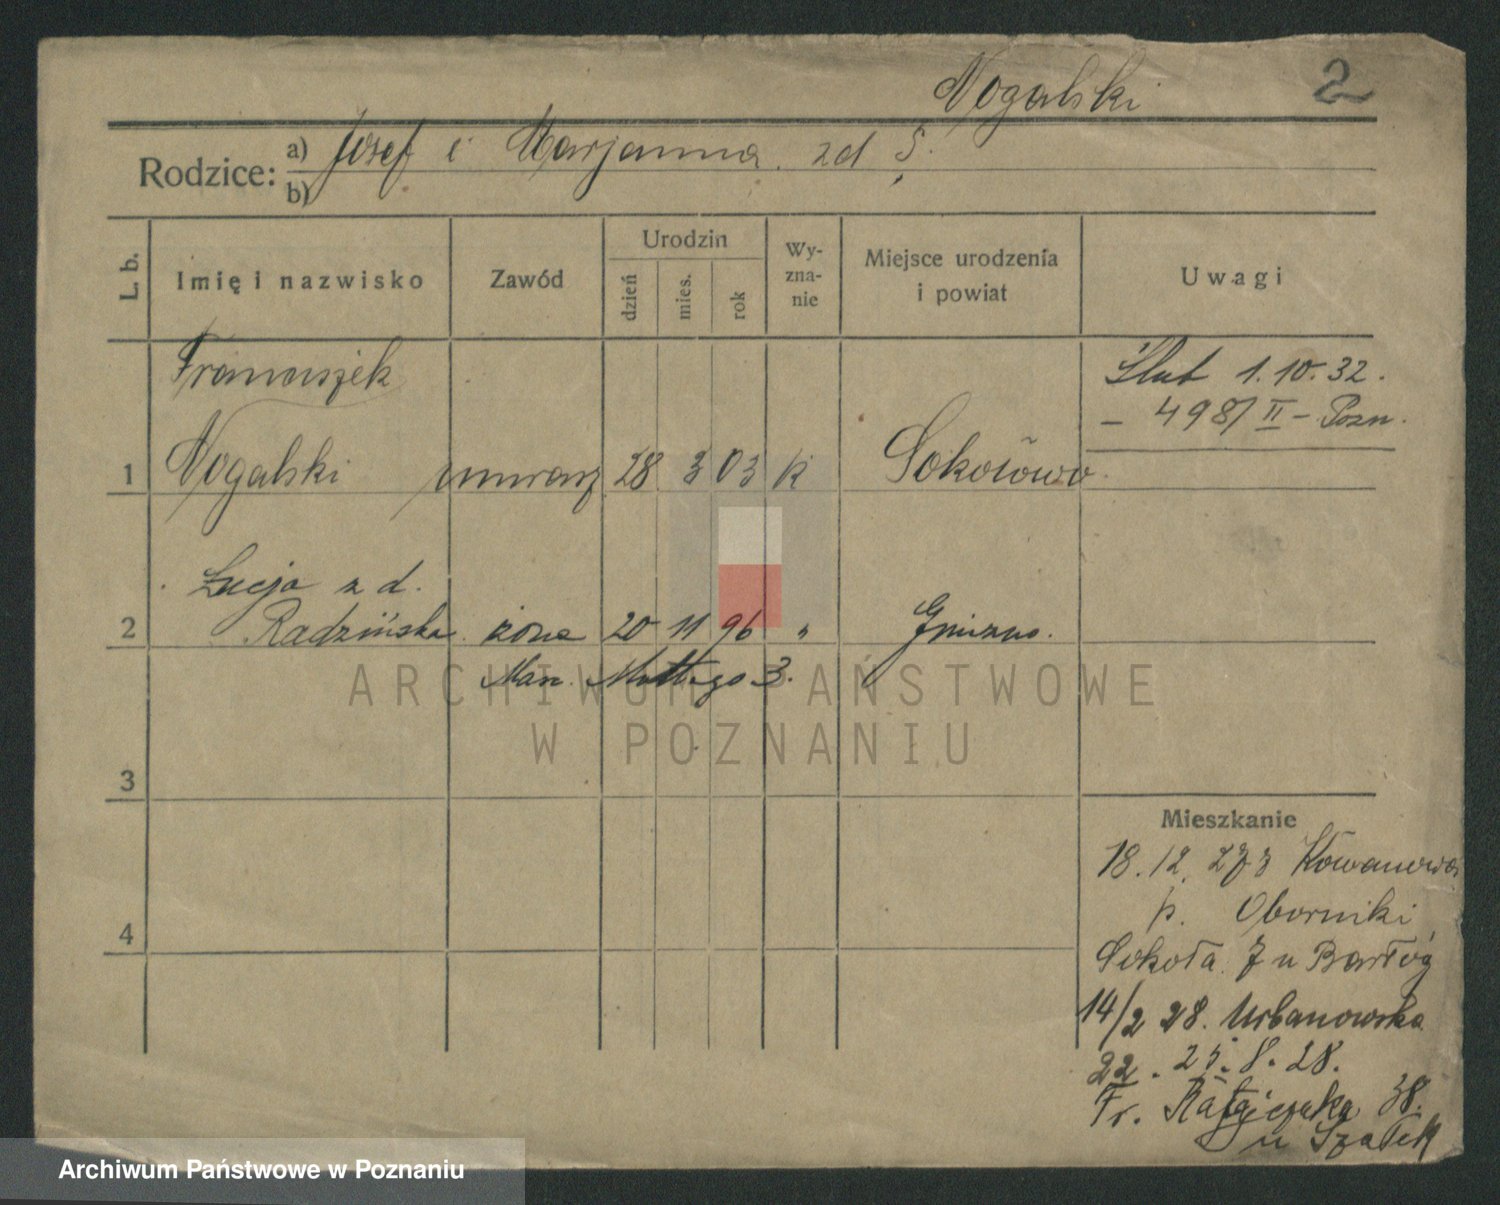 Nogalski
2
Rodzice: a) Josef i Marjanna zd S.
b)
L. b. Imię i nazwisko Zawód Urodzin dzień mies. rok Wy-zna-nie Miejsce urodzenia i powiat Uwagi
Franciszek
Ślub 1.10.32.
– 498/II – Pozn.
1 Nogalski murarz 28 3 03 k Sokołowo
Łucja z d.
2 Radzińska żona 20 11 96 " Gniezno.
3.
ARCHIWUM PAŃSTWOWE
W POZNANIU
3
Mieszkanie
18.12. Kowanowo
4
p. Oborniki
Sokoła 7 u Barłóg
14/2 28. Urbanowska
22. 25.8.28.
Fr. Ratajczaka 38.
u
Archiwum Państwowe w Poznaniu